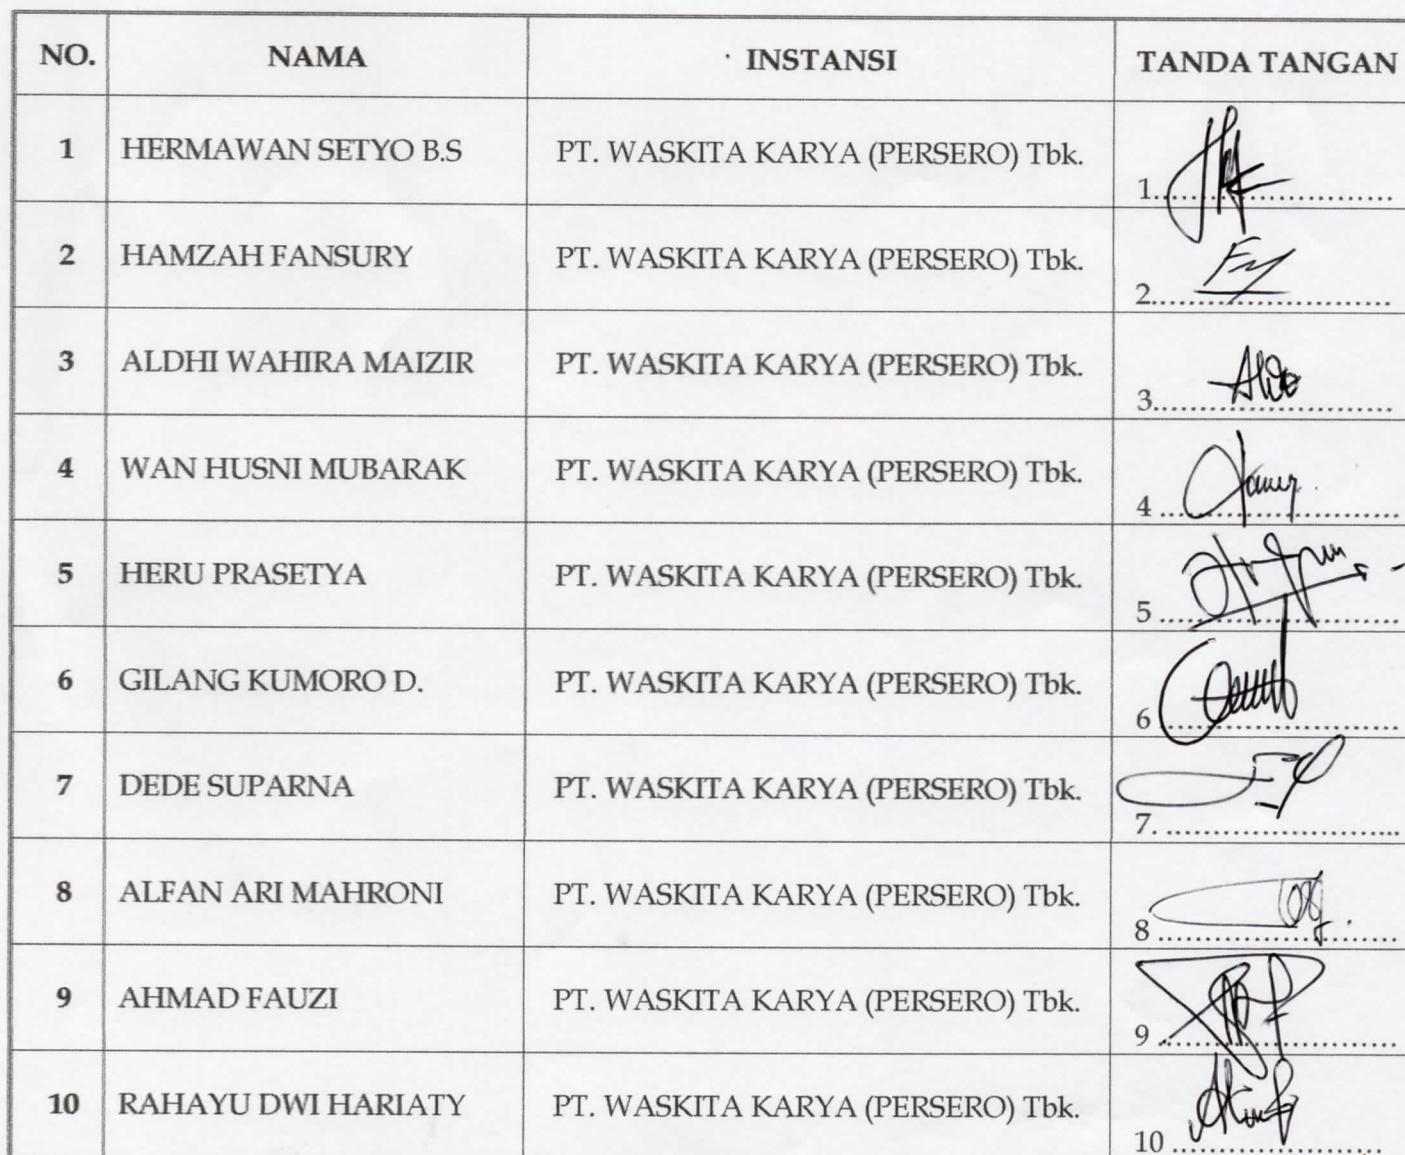 NO. NAMA INSTANSI TANDA TANGAN
1 HERMAWAN SETYO B.S PT. WASKITA KARYA (PERSERO) Tbk. 1..........................
2 HAMZAH FANSURY PT. WASKITA KARYA (PERSERO) Tbk. 2..........................
3 ALDHI WAHIRA MAIZIR PT. WASKITA KARYA (PERSERO) Tbk. 3..........................
4 WAN HUSNI MUBARAK PT. WASKITA KARYA (PERSERO) Tbk. 4 ..........................
5 HERU PRASETYA PT. WASKITA KARYA (PERSERO) Tbk. 5 ..........................
6 GILANG KUMORO D. PT. WASKITA KARYA (PERSERO) Tbk. 6 ..........................
7 DEDE SUPARNA PT. WASKITA KARYA (PERSERO) Tbk. 7. ..........................
8 ALFAN ARI MAHRONI PT. WASKITA KARYA (PERSERO) Tbk. 8 ..........................
9 AHMAD FAUZI PT. WASKITA KARYA (PERSERO) Tbk. 9 ..........................
10 RAHAYU DWI HARIATY PT. WASKITA KARYA (PERSERO) Tbk. 10 ..........................